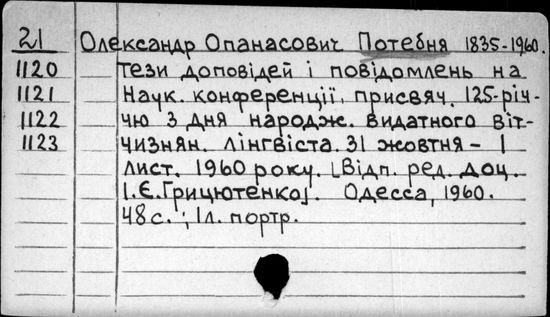 21 Олександр Опанасович Потебня 1835-1960.
1120 Тези доповідей і повідомлень на
1121 Наук. конференції, присвяч. 125-річ-
1122 чю з дня народж. видатного віт-
1123 чизнян. лінгвіста. 31 жовтня – 1
лист. 1960 року. [Відп. ред. доц.
І.Є.Грицютенко]. Одесса, 1960.
48 с.; 1л. портр.